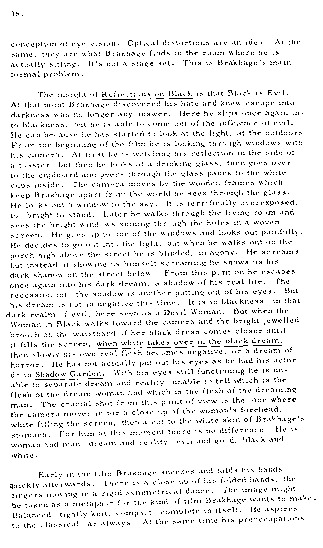 18.
conception of eye vision. Optical distortions are an idea. At the
same, they are what Brakhage finds in the room where he is
actually sitting. It's not a stage set. This is Brakhage's main
formal problem.
The insight of Reflections on Black is that Black is Evil.
At that point Brakhage discovered his hate and knew escape into
darkness was no longer any answer. Here he slips once again in-
to blackness, but he is able to come out of the influence of evil.
He can because he has started to look at the light, at the outdoors
From the beginning of the film he is looking through windows with
his camera. At first he is watching his reflection in the side of
a toaster, but then he looks at a drinking glass, then goes over
to the cupboard and peers through the glass panes to the white
cups inside. The camera moves by the wooden frames which
keep Brakhage apart from the world he sees through the glass.
He looks out a window to the sky. It is terrifically overexposed,
too bright to stand. Later he walks through the living room and
sees the bright wind coming through the holes in a woven
screen. He goes up to one of the windows and looks out painfully.
He decides to go out into the light, but when he walks out on the
porch high above the street he is blinded, in agony. He screams
but instead of showing us himself screaming he shows us his
dark shadow on the street below. From this pain he escapes
once again into his dark dream, a shadow of his real life. The
recession of the shadow is another putting out of his eyes. But
his dream is not in negative this time. It is so blackness in that
dark realm of evil, here seen as a Devil Woman. But when the
Woman in Black walks toward the camera and the bright jewelled
brooch at the waistband of her black dress comes closer until
it fills the screen, when white takes over in the black dream,
then slowly his own real flesh becomes negative, or a dream of
horror. He has not actually put out his eyes as he had his actor
do in Shadow Garden. With his eyes still functioning he is un-
able to separate dream and reality, unable to tell which is the
flesh of the dream woman and which is the flesh of the dreaming
man. The crucial shot from this point of view is the one where
the camera moves in for a close up of the woman's forehead,
white filling the screen, then a cut to the white skin of Brakhage's
stomach. For him at this moment there is no difference. He is
woman and man, dream and reality, evil and good, black and
white.
Early in the film Brakhage sneezes and folds his hands
quickly afterwards. There is a close up of his folded hands, the
fingers moving in a rigid symmetrical dance. The image might
be taken as a metaphor for the kind of film Brakhage wants to make.
Balanced, tightly knit, compact, complete in itself. He aspires
to the classical. As always. At the same time his preoccupations